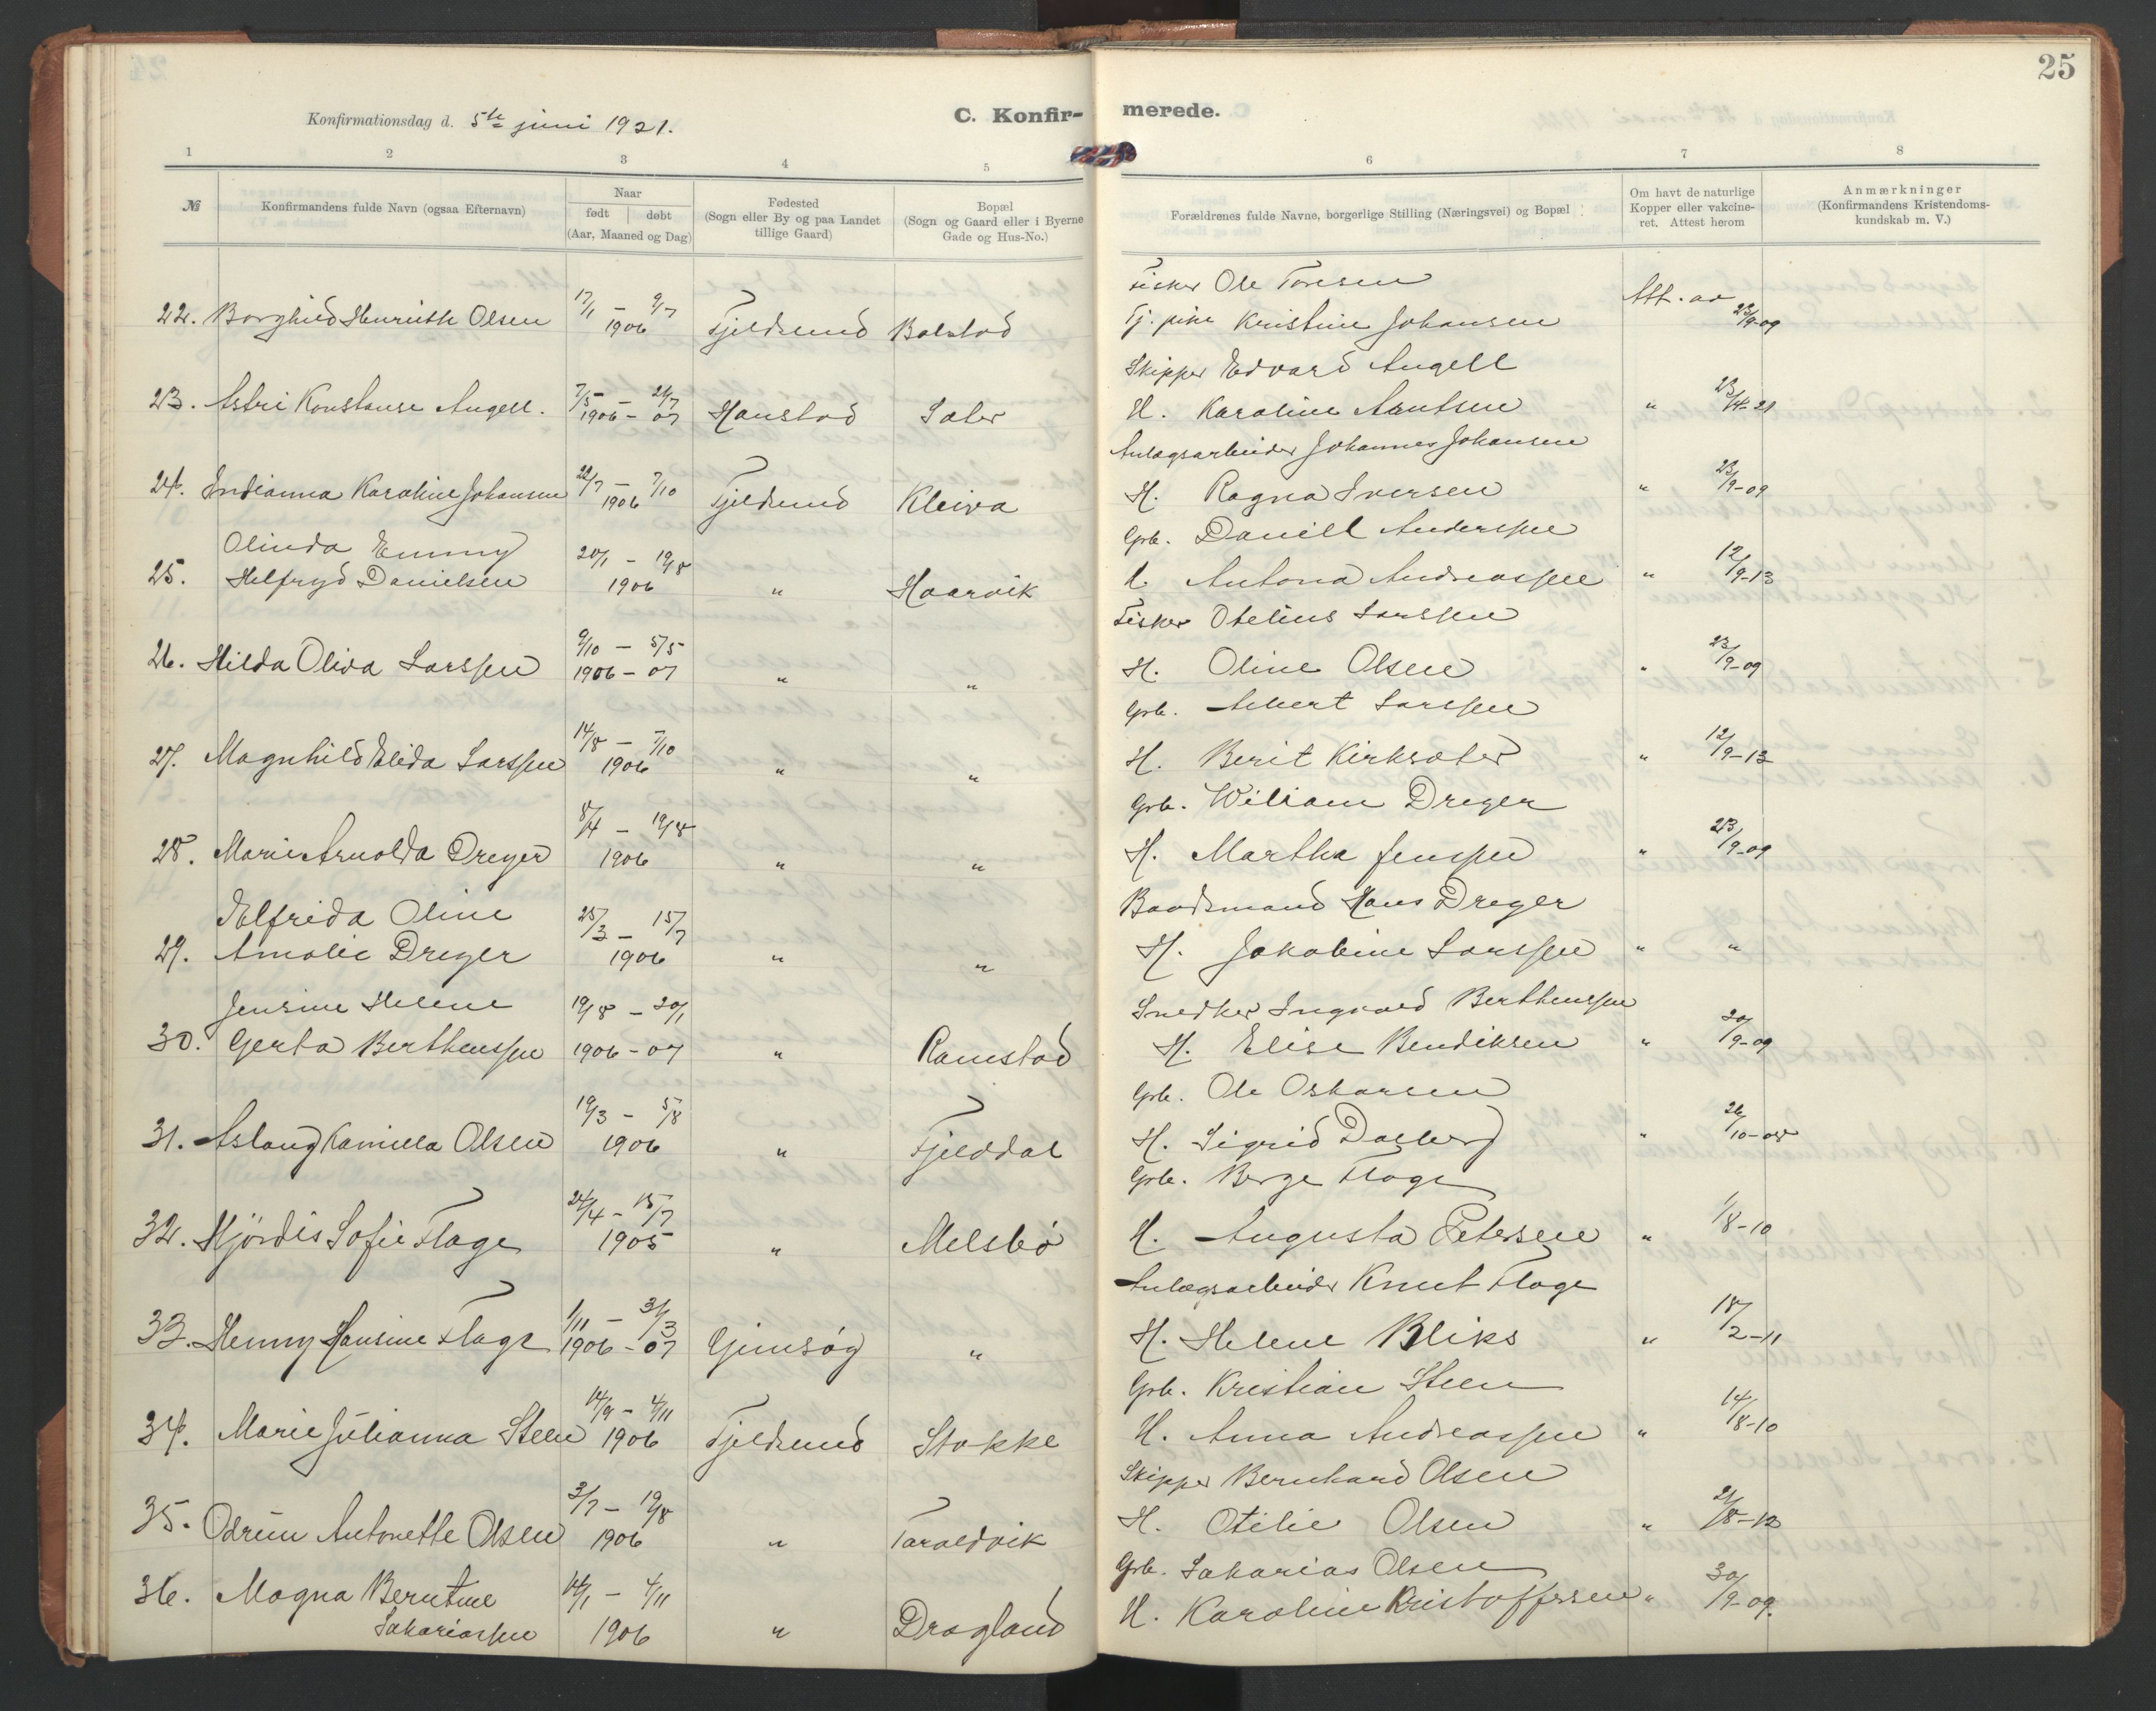 25
Konfirmationsdag d. 5te juni 1921.
C. Konfir-
merede.
1 2 3 4 5 6 7 8
№
Konfirmandens fulde Navn (ogsaa Efternavn)
Naar
født døbt
(Aar, Maaned og Dag)
Fødested
(Sogn eller By og paa Landet
tillige Gaard)
Bopæl
(Sogn og Gaard eller i Byerne
Gade og Hus-No.)
Forældrenes fulde Navne, borgerlige Stilling (Næringsvei) og Bopæl
Om havt de naturlige
Kopper eller vakcine-
ret. Attest herom
Anmærkninger
(Konfirmandens Kristendoms-
kundskab m. V.)
Fisker Ole Toresen
22. Borghild Henriette Olsen 17/1 – 9/7 1906 Fjeldsund Bolstad
Tj. pike Kristine Johansen Att. av 23/9-09
Skipper Edvard Angell
23. Astri Konstanse Angell. 7/5 – 21/7 1906 – 07 Hanstad Sater
H. Karoline Arntsen " 23/4-21
Anlægsarbeider Johannes Johansen
24. Indianna Karoline Johansen 22/7 – 7/10 1906 Fjeldsund Kleiva
H. Ragna Iversen " 23/9-09
Grb. Daniel Anderssen
Olinda Emmy
25. Helfryd Danielsen 20/1 – 19/8 1906 " Haarvik
H. Antona Andreassen " 12/9-13
Fisker Otelius Larssen
26. Hilda Oliva Larssen 9/10 – 5/5 1906 – 07 " "
H. Oline Olsen " 23/9-09
Grb. Albert Larssen
27. Magnhild Elida Larssen 14/8 – 7/10 1906 " "
H. Berit Kirksæter " 12/9-13
Grb. William Dreyer
28. Marie Arnolda Dreyer 8/4 – 19/8 1906 " "
H. Martha Jenssen " 23/9-09
Baadsmand Hans Dreyer
Elfrida Oline
29. Amalie Dreyer 25/3 – 15/7 1906 " "
H. Jakobine Larssen " "
Snedker Ingvald Berthenssen
Jensine Helene
30. Gerta Berthenssen 19/8 – 20/1 1906 – 07 " Ramstad
H. Elise Bendiksen " 20/9-09
Grb. Ole Oskarsen
31. Aslaug Kamilla Olsen 19/3 – 5/8 1906 " Fjelddal
H. Sigrid Dalberg " 26/10-08
Grb. Berge Flage
32. Hjördis Sofie Flage 24/4 – 15/7 1905 " Melsbö
H. Augusta Petersen " 1/8-10
Anlægsarbeider Knut Flage
33. Henny Hansine Flage 1/11 – 31/3 1906 – 07 Gimsøy "
H. Helene Bliks " 18/2-11
Grb. Kristian Steen
34. Marie Julianna Steen 14/9 – 4/11 1906 Fjeldsund Stokke
H. Anna Andreassen " 14/8-10
Skipper Bernhard Olsen
35. Odrun Antonette Olsen 3/7 – 19/8 1906 " Taraldvik
H. Otilie Olsen " 21/8-12
Grb. Sakarias Olsen
36. Magna Berntine 14/1 – 4/11
Sakariassen 1906 " Dragland
H. Karoline Kristoffersen " 30/9-09.